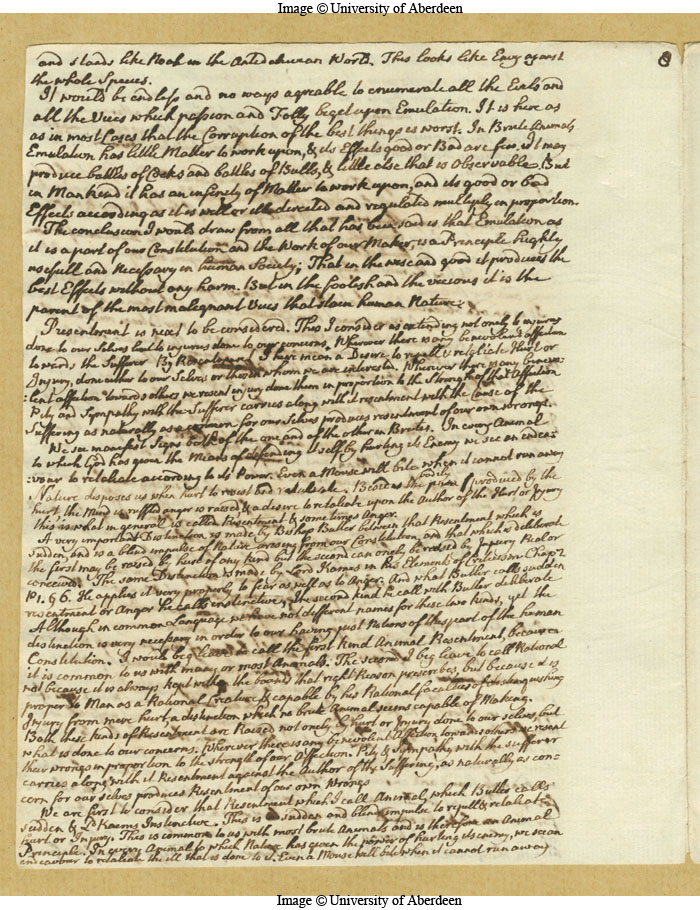 Image © University of Aberdeen
8
and stands like Noah in the Antediluvian World. This looks like Envy against
the whole Species.
It would be endless and no ways agreable to enumerate all the Evils and
all the Vices which passion and Folly beget upon Emulation. It is here as
as in most Cases that the Corruption of the best things is worst. In Brute Animals
Emulation has little Matter to work upon, & its Effects good or Bad are few. It may
produce battles of Cocks and battles of Bulls, & little else that is observable. But
in Mankind it has an infinity of Matter to work upon, and its good or bad
Effects according as it is well or ill directed and regulated multiply in proportion.
The conclusion I would draw from all that has been said is that Emulation as
it is a part of our Constitution and the Work of our Maker, is a Principle highly
usefull and Necessary in human Society; That in the wise and good it produces the
best Effects without any harm. But in the foolish and the vicious it is the
parent of the most malignant Vices that stain human Nature.
Resentment is next to be considered. This I consider as extending not only to injuries
done to our Selves but to injuries done to our concerns. Wherever there is any benevolent affection
towards the Sufferer By Resentment I here mean a Desire to repell & retaliate Hurt or
Injury, done either to our Selves or those in whom we are interested. Wherever there is any benevo-
lent affection towards others we resent injury done them in proportion to the Strength of that Affection
Pity and Sympathy with the Sufferer carries along with it resentment with the Cause of the
Suffering as naturally as concern for our Selves produces resentment of our own wrongs.
We see manifest Signs both of the one and of the other in Brutes. In every Animal
to which God has given the Means of defending it self by hurting its Enemy we see an endea-
vour to retaliate according to its Power. Even a Mouse will bite when it cannot run away
Nature disposes us when hurt to resist and retaliate. Besides the bodily pain produced by the
hurt, the Mind is ruffled anger is raised & a desire to retaliate upon the Author of the Hurt or Injury
this is what in general is called Resentment & sometimes Anger.
A very important Distinction is made by Bishop Butler between that Resentment which is
sudden, and is a blind impulse of Native arising from our Constitution, and that which is deliberate
the first may be raised by hurt of any kind but the second can onely be raised by Injury Real or
conceived. The same Distinction is made by Lord Kames in his Elements of Criticism Chap 2
P 1. § 6. He applies it very properly to fear as well as to Anger. And what Butler calls sudden
resentment or Anger he calls instinctive; the second kind he call with Butler deliberate
Although in common Language we have not different names for these two kinds, yet the
distinction is very necessary in order to our having just Notions of this part of the human
Constitution. I would beg leave to call the first kind Animal Resentment, because
it is common to us with many or most Animals. The second I beg leave to call Rational
not because it is always kept within the bounds that right Reason prescribes, but because it is
proper to Man as a Rational Creature & capable by his Rational faculties of distinguishing
Injury from mere hurt, a distinction which no brute Animal seems capable of Making.
Both these kinds of Resentment are Raised not onely by hurt or Injury done to our selves, but
what is done to our concerns. Wherever there is any benevolent Affection towards others we resent
their wrongs in proportion to the strength of our Affection. Pity & Sympathy with the sufferer
carries along with it Resentment against the Author of the Suffering, as naturally as con=
cern for our selves produces Resentment of our own Wrongs
We are first to consider that Resentment which I call Animal, which Butler calls
sudden & Ld Kaims Instinctive. This is a sudden and blind impulse to repell & retaliate
hurt or Injury. This is common to us with most brute Animals and is therefore an Animal
Principle. In every Animal to which Nature has given the power of hurting its enemy, we see an
endeavour to retaliate the ill that is done to it. Even a Mouse will bite when it cannot run away
Image © University of Aberdeen